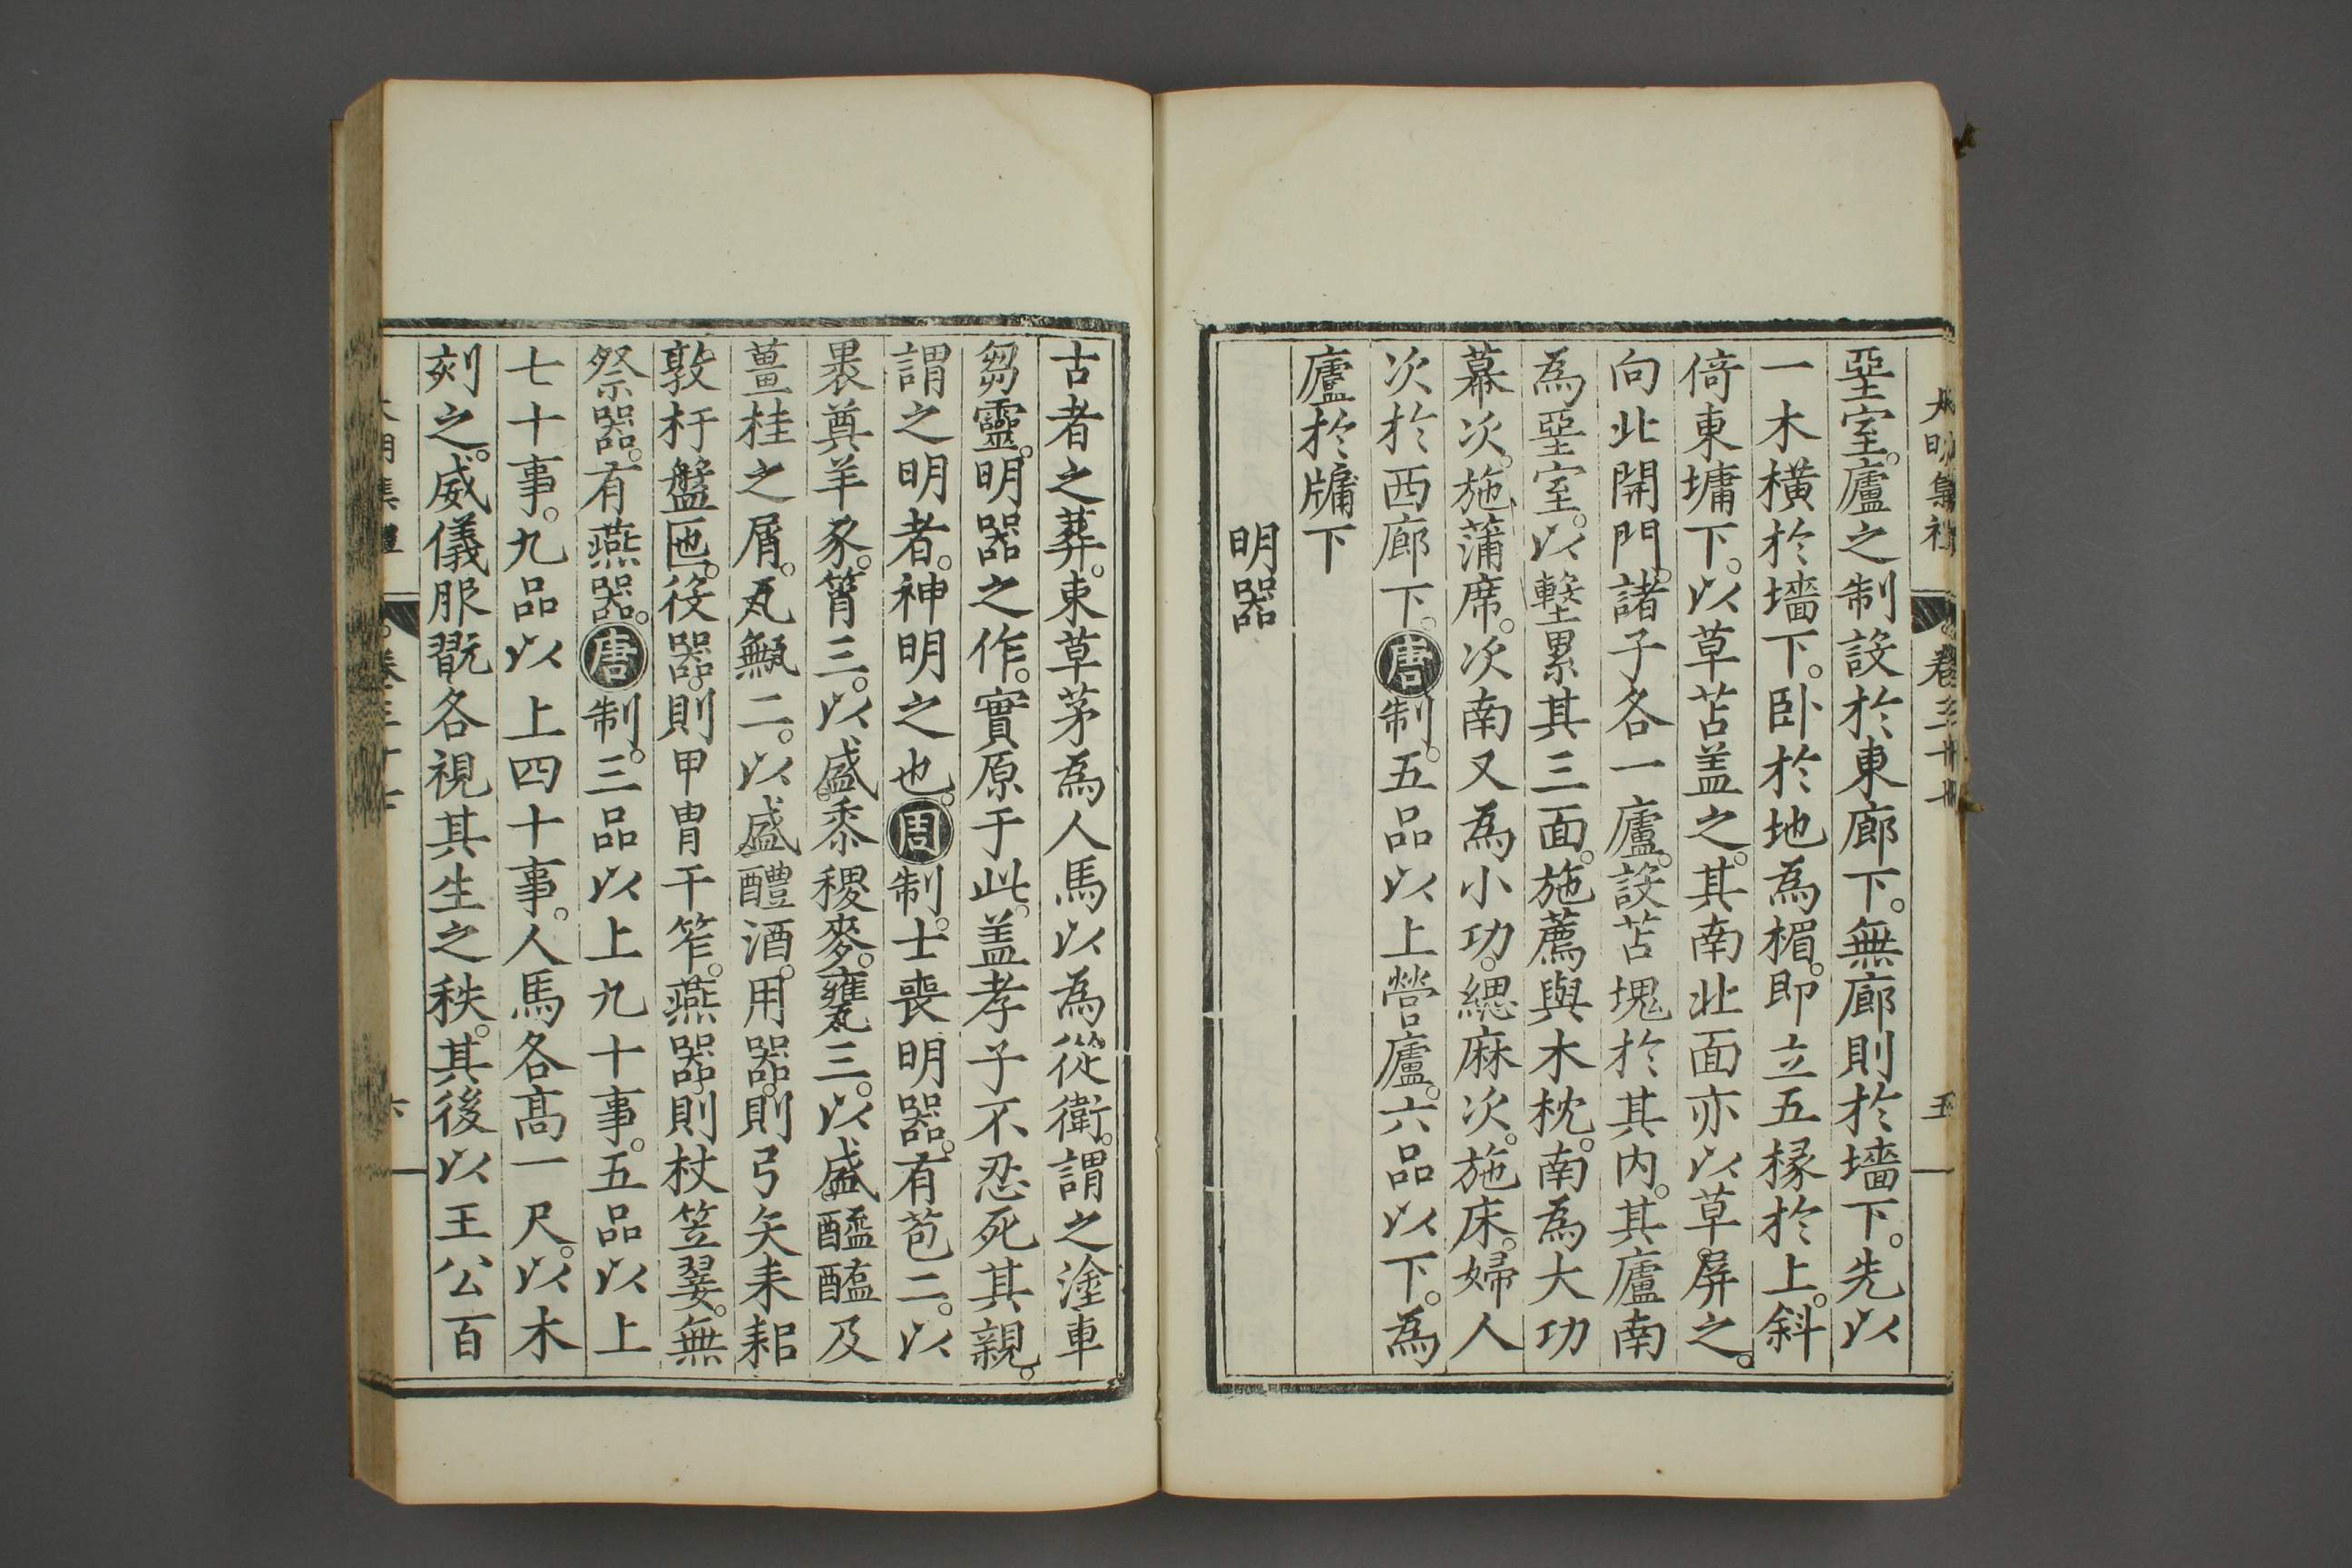 堊室。廬之制設於東廊下。無廊則於墻下。先以
一木橫於墻下。卧於地為楣。即立五椽於上。斜
倚東墉下。以草苫盖之。其南北面亦以草屏之。
向北開門。諸子各一廬。設苫塊於其內。其廬南
為堊室。以墼累其三面。施薦與木枕。南為大功
幕次。施蒲席。次南又為小功。緦麻次。施床。婦人
次於西廊下。唐制。五品以上營廬。六品以下。為
廬於牗下
明器
古者之葬。束草茅為人馬以為從衛。謂之塗車
芻靈。明器之作。實原于此。盖孝子不忍死其親。
謂之明者。神明之也。周制。士喪明器。有苞二。以
褁奠羊豕。筲三。以盛黍稷麥。甕三。以盛醯醢及
薑桂之屑。甒二。以盛醴酒。用器。則弓矢耒耜
敦杅盤匜。役器。則甲冑干笮。燕器。則杖笠翣。無
祭器。有燕器。唐制。三品以上九十事。五品以上
七十事。九品以上四十事。人馬各高一尺。以木
刻之。威儀服翫各視其生之秩。其後以王公百